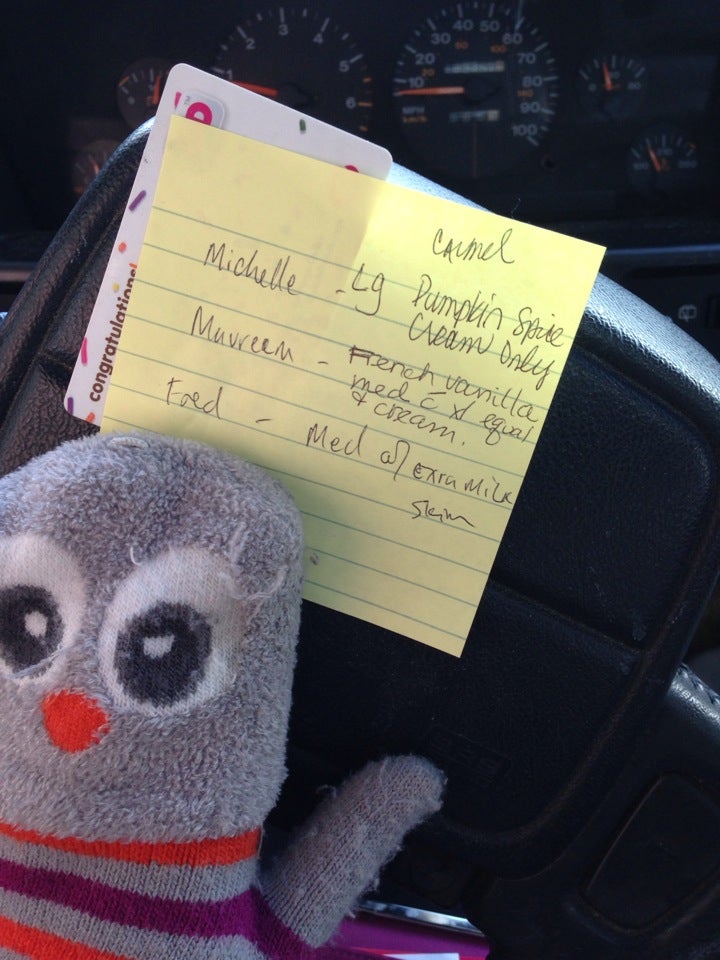 carmel
Michelle - Lg Pumpkin Spice
Cream only
Maureen - French vanilla
med c̄ x1 equal
& cream.
Fred - Med w/ extra milk
skim
congratulations!
1 2 3 4 5 6
10 20 30 40 50 60 70 80 90 100
MPH
km/h